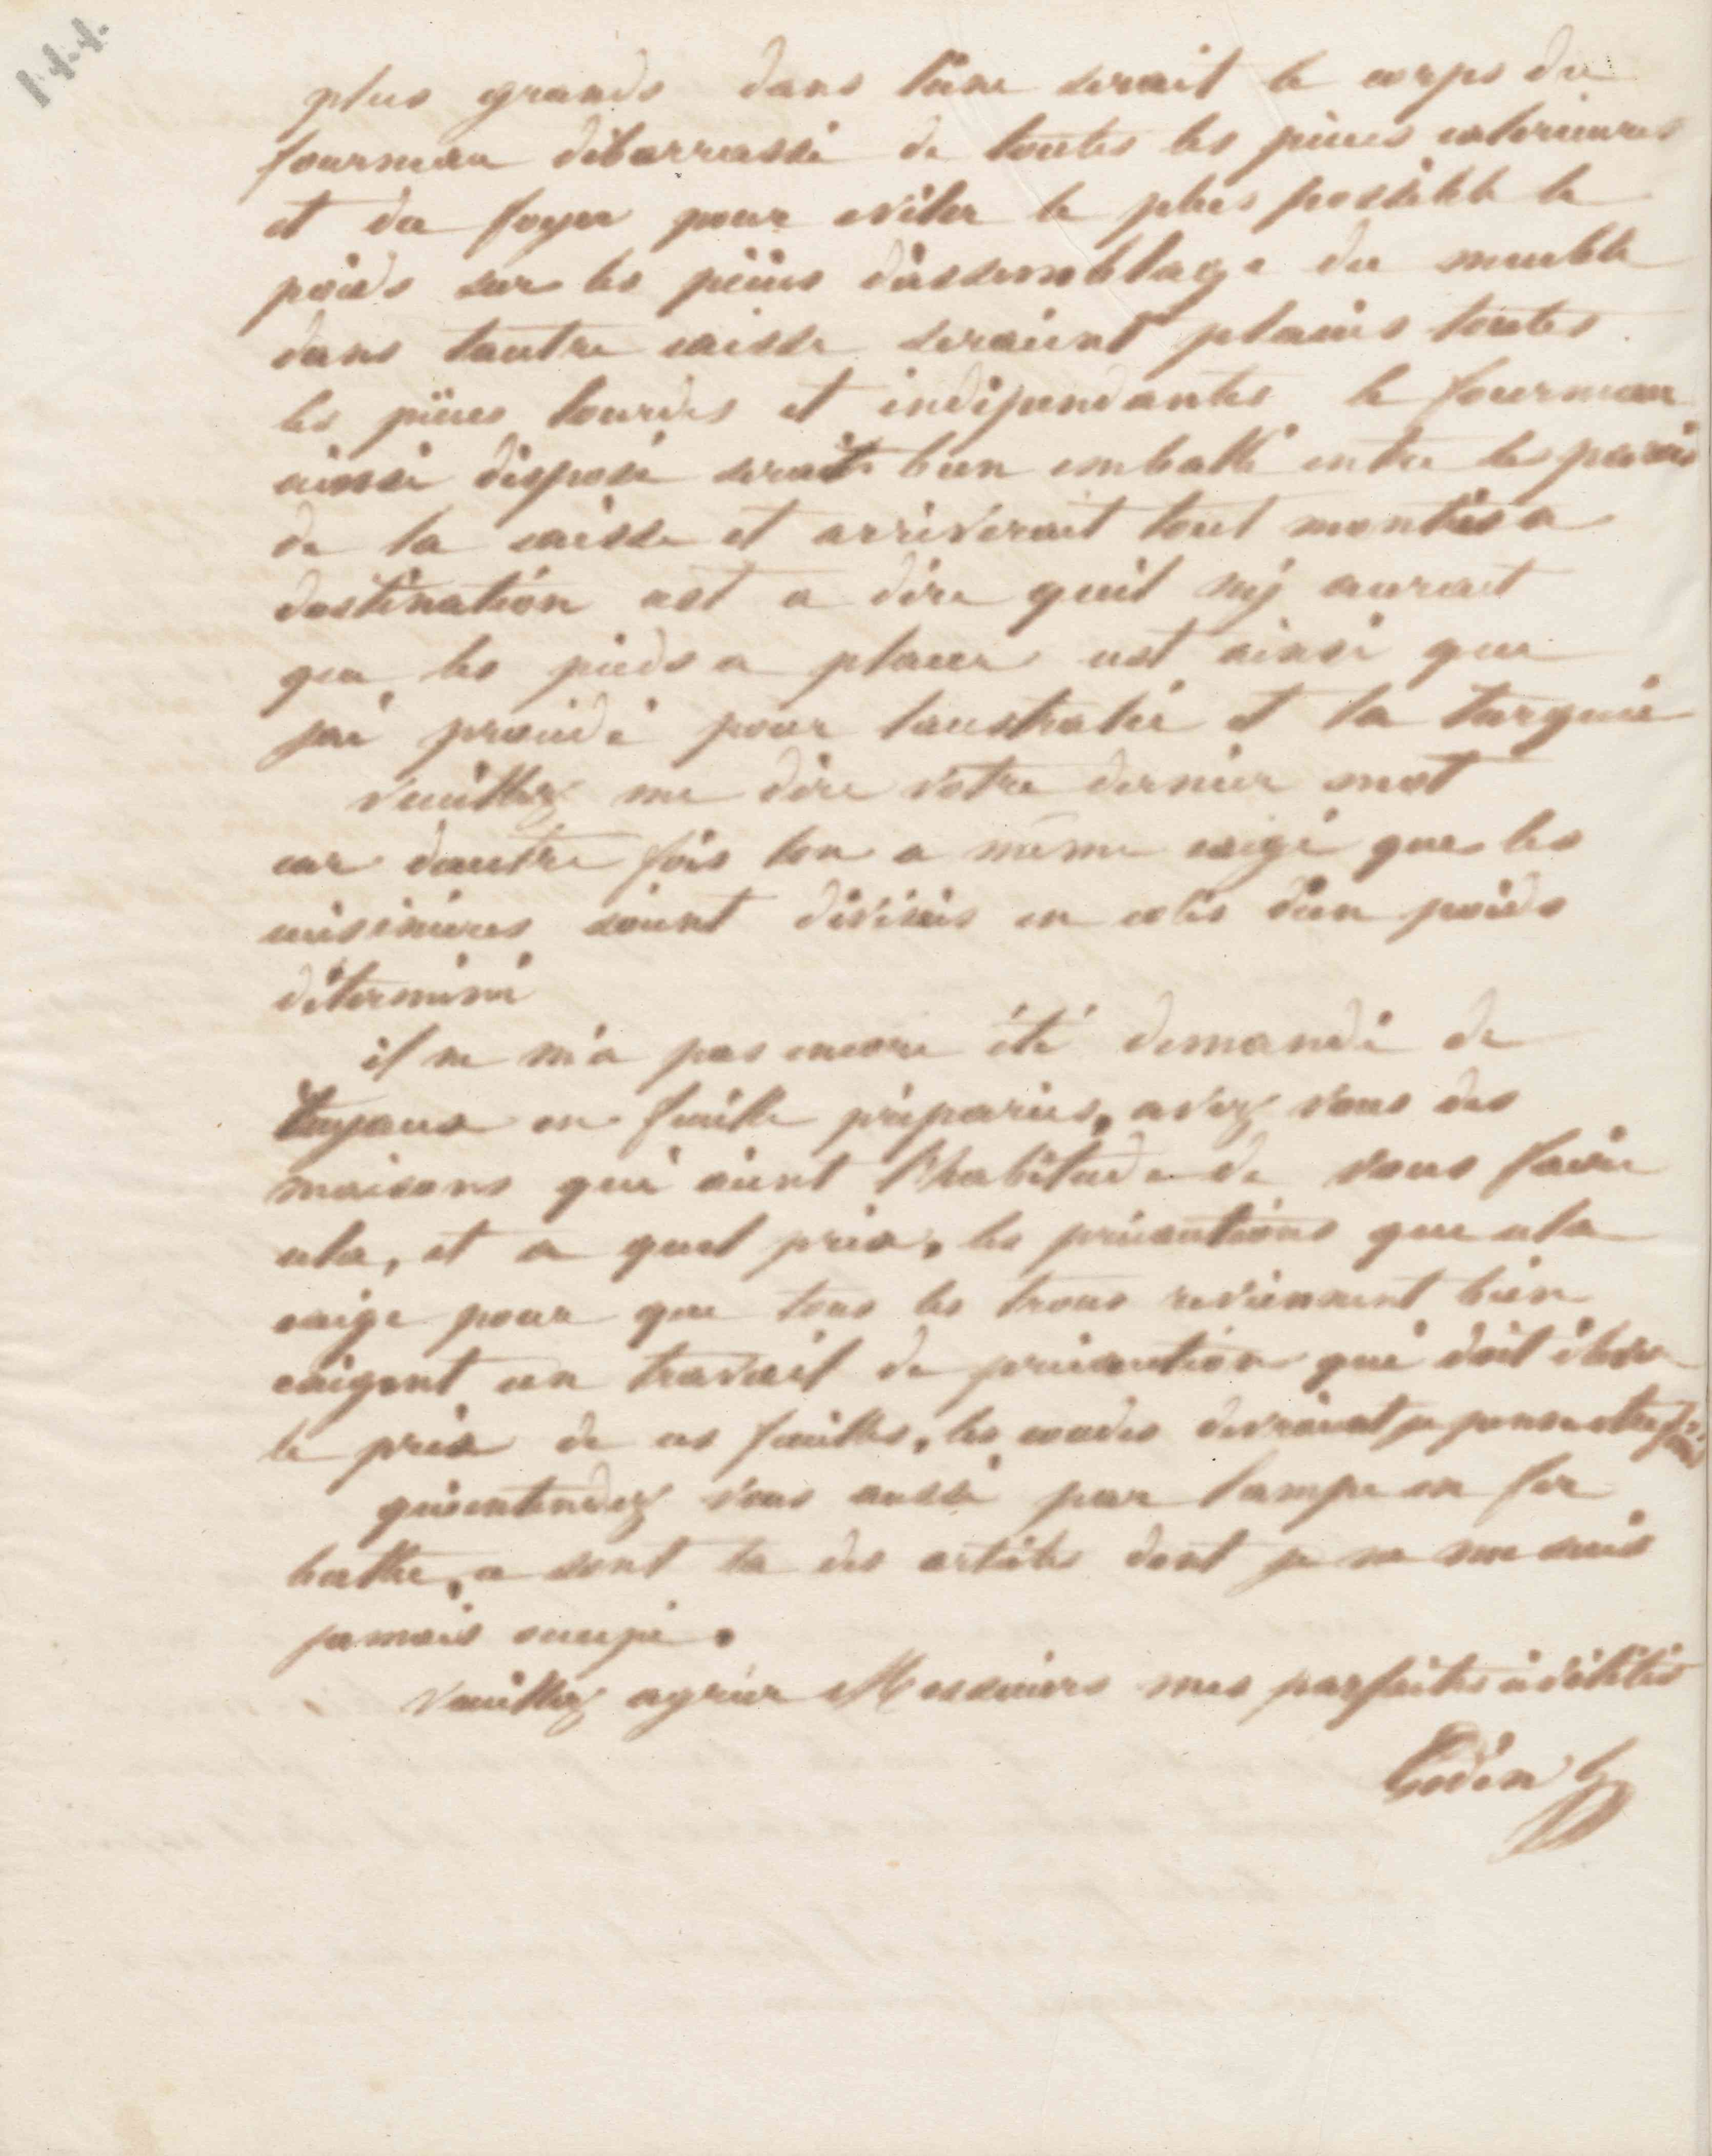 144
plus grands dans l'une serait le corps du
fourneau débarrassé de toutes les pièces exterieures
et du foyer pour eviter le plus possible le
poids sur les pièces d'assemblage du meuble
dans l'autre caisse seraient placées toutes
les pièces lourdes et indépendantes le fourneau
ainsi disposé serait bien emballé entre les parois
de la caisse et arriverait tout montés a
destination cest a dire quil ny aurait
que les pieds a placer cest ainsi que
jai procédé pour laustralie et la turquie
veuillez me dire votre dernier mot
car dautre fois lon a même exigé que les
cuisinières soient divisées en colis d'un poids
déterminé
il ne m'a pas encore été demandé de
tuyaux en feuille préparées, avez vous des
maisons qui aient l'habitude de vous faire
cela, et a quel prix, les précautions que cela
exige pour que tous les trous reviennent bien
exigent un travail de précaution qui doit élever
le prix de ces feuilles, les coudes devraient je pense etre finis
quentendez vous aussi par lampe en fer
battu, ce sont la des articles dont je ne me suis
jamais occupé.
veuillez agréer Messieurs mes parfaites civilités
Godin